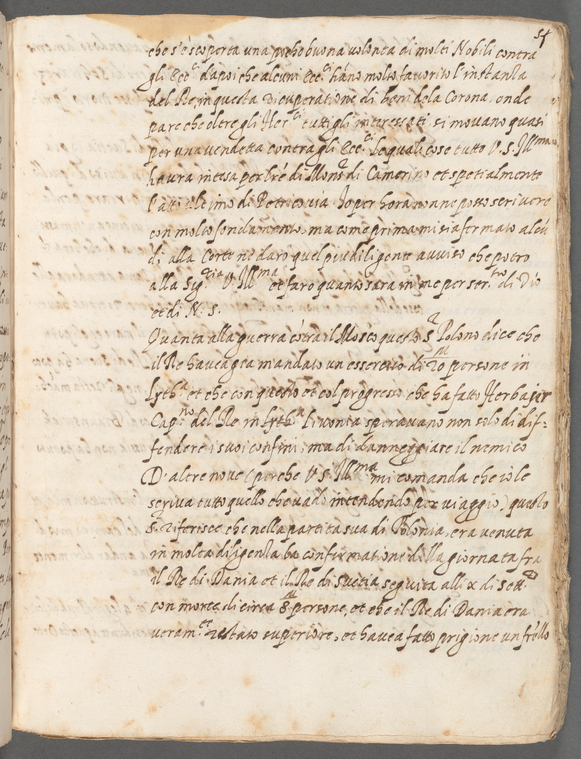 54
che s'è scoperta una poco buona volontà di molti Nobili contra
gli Ecc.ci dapoi che alcuni Ecc.ci hāno molto favorito l'instanza
del Re in questa recuperatione di beni dela Corona, onde
pare che oltre gli Her.ci tutti gli interessati si movano quasi
per una vendetta contra gli Ecc.ci le quali cose tutte V. S. Ill.ma
havrà intesa per lr̃e di Mons.r di Camerino et spetialmente
l'atti ultimo di Petricovia. Io per hora non ne posso scrivere
con molto fondamento, ma come prima mi sia fermato alcū
dì alla Corte ne darò quel più diligente avviso che potrò
alla Sig.ria V. Ill.ma et farò quanto sarà in me per ser.tio di Dio
et di N. S.
Quanta alla guerra cōtra il Mosco questo S.r Polono dice che
il Re havea gia mandato un essercito di 20 m persone in
Lyth.a et che con questo et col progresso che ha fatto Herbajur
Cap.no del Re in Lyth.a Livonia speravano non solo di dif=
fendere i suoi confini, ma di danneggiare il nemico
D'altre nove (perche V. S. Ill.ma mi comanda che io le
scriva tutto quello che vado intendendo per viaggio) questo
S.r riferisce che nella partita sua di Polonia, era venuta
in molta diligenza la confirmatione della giornata fra
il Re di Dania et il Re di Suetia seguita alli x di Sett.
con morte di circa 8 m persone, et che il Re di Dania era
veram.te restato superiore, et havea fatto prigione un fr̃ello